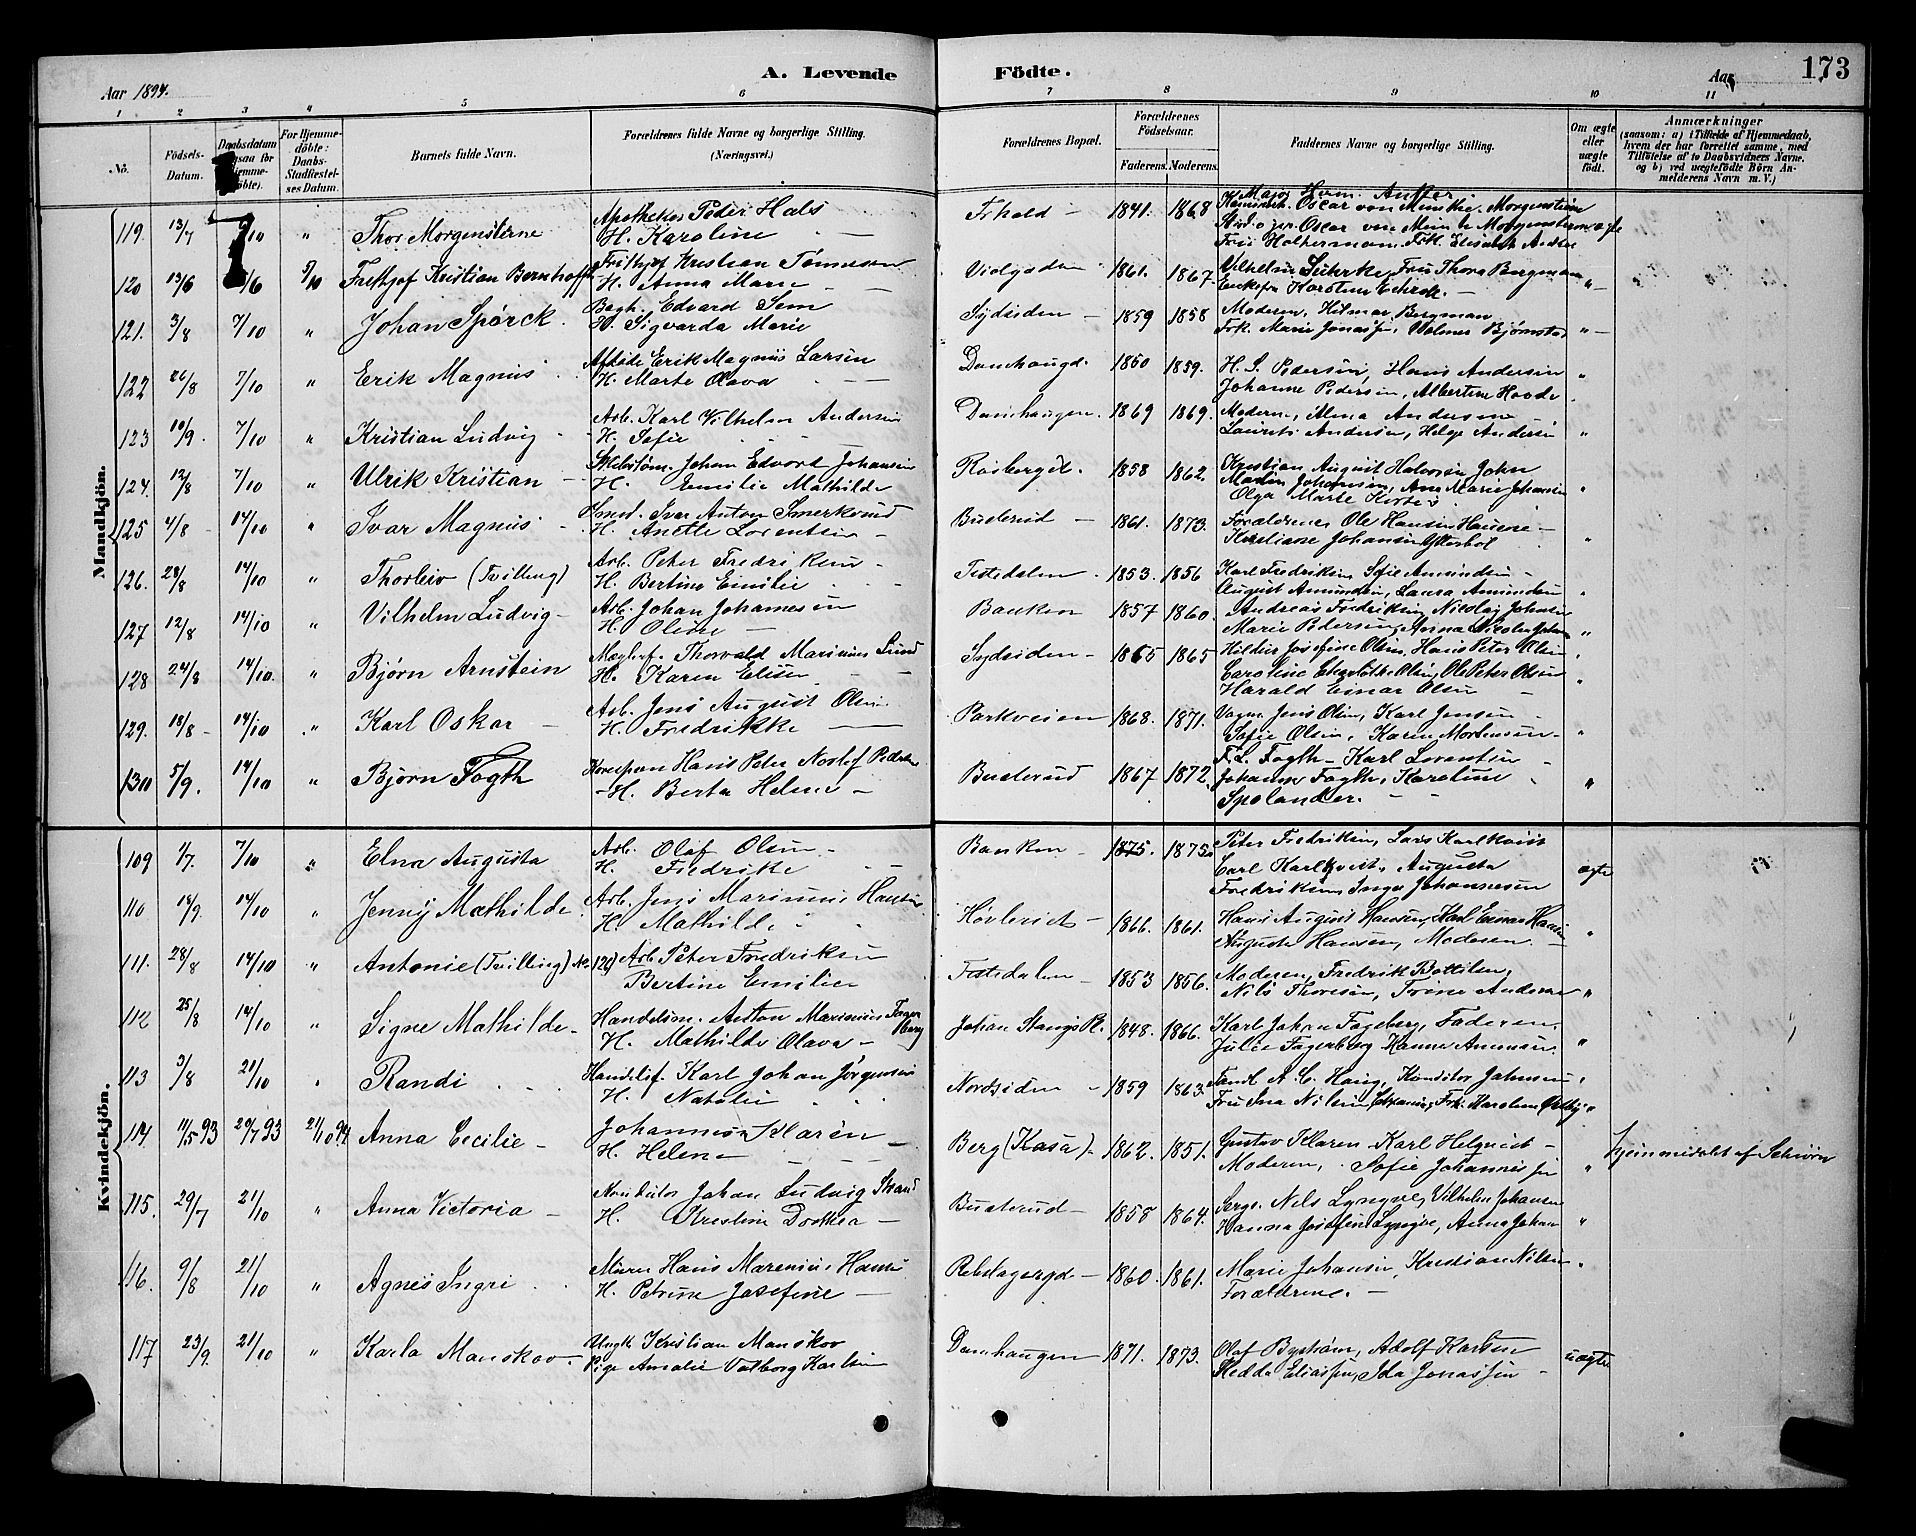 A. Levende Födte.
173
Aar 1894.
Aar
1 2 3 4 5 6 7 8 9 10 11
No.
Födsels-Datum.
Daabsdatum
For Hjemme-döbte: Daabs-Stadfæstel-ses Datum.
Barnets fulde Navn.
Forældrenes fulde Navne og borgerlige Stilling.
(Næringsvei.)
Forældrenes Bopæl.
Forældrenes Födselsaar.
Faderens. Moderens.
Faddernes Navne og borgerlige Stilling.
Om ægte eller uægte født.
Anmærkninger
(saasom: a) i Tilfælde af Hjemmedaab, hvem der har forrettet samme, med Tilföielse af to Daabsvidners Navne, og b) ved uægtefödte Börn Anmelderens Navn m. V.)
Mandkjön.
119. 13/7 9/10 " Thor Morgenstierne Apotheker Peder Hals Frhald 1841. 1868 Major
H. Karoline Oscar von Munthe Morgenstierne
120 13/6 /6 7/10 Frithjof Kristian Bernhofft Frithjof Kristian Tønnesen Violgaden 1861. 1867. Vilhelm Luhrke, Fru Thora Bergman
H. Anna Marie
121. 3/8 7/10 " Johan Spørck Bagh. Edvard Sem Sydsiden 1859 1858 Moderen, Hilmar Bergman
H. Sigvarda Marie Frk. Marie Jonassen, Valmer Bjørnstad "
122 26/8 7/10 " Erik Magnus Erik Magnus Larsen Damhaugd. 1850 1859. H. S. Pedersen, Hans Andersen "
H. Marte Olava Johanne Pedersen, Albertine Hovde
123 10/9. 7/10 " Kristian Ludvig Arb. Karl Vilhelm Andersen Damhaugen. 1869 1869. Moderen, Alma Andersen
H. Sofie Laurits Andersen, Helge Andersen "
124. 12/8 7/10 " Ulrik Kristian Johan Edvart Johansen Rosbergd. 1858 1862. Kristian August Halvorsen, John
H. Emilie Mathilde Martin Johansen, Ane Marie Johansen "
Olga Marte
125 4/8 14/10 " Ivar Magnus Ivar Anton Smerkrud Busterud 1861. 1873. Forældrene, Ole Hansen
H. Anette Lorentsen Kristiane Johansen Ytterbøl "
126. 28/8 14/10 " Thorleiv (Tvilling) Arb. Peter Fredriksen Tistedalen 1853. 1856 Karl Fredriksen, Sofie Amundsen
H. Bertine Emilie August Amundsen, Laura Amundsen "
127 12/8 14/10 " Vilhelm Ludvig Arb. Johan Johannesen Banken 1857 1860. Andreas Fredriksen, Nicolay Johnsen
H. Oline Marie Pedersen, Anna "
128 24/8 14/10. " Bjørn Arnstein Thorvald Marinius Lund Sydsiden 1865 1865 Josefine Olsen, Hans Peter Olsen
H. Karen Elise Caroline Olsen, Ole Peter Olsen "
Harald Einar Olsen
129. 18/8 14/10 " Karl Oskar Arb. Jens August Olsen Parkveien 1868. 1871. Jens Olsen, Karl Jensen
H. Fredrikke Sofie Olsen, Karen Mortensen "
130 5/9. 14/10 " Bjørn Fogth Hans Peter Pedersen Busterud 1867 1872. F. L. Fogth Karl Lorentsen
H. Berta Helene Johanne Fogth, Karoline "
Spolander.
Kvindekjön.
109 1/7. 7/10 " Elna Augusta Arb. Olaf Olsen Banken 1875. 1875. Peter Fredriksen, Lars Karlkvist
H. Fredrike Carl Karlkvist, Augusta ægte
Fredriksen, Inga Johannesen
110 18/9. 14/10 " Jenny Mathilde Arb. Jens Marinius Hansen Høvleriet 1866. 1861. Hans August Hansen, Karl Einar Hansen
H. Mathilde Auguste Hansen, Moderen "
111. 28/8 14/10 " Antonie (Tvilling) No. 126) Arb Peter Fredriksen Tistedalen 1853 1856. Moderen, Fredrik Bottilsen,
Bertine Emilie Nils Thoresen, Trine Andersen "
112 25/8 14/10 " Signe Mathilde Handelsm. Anton Marinius Fagerberg Johan Stangs Pl. 1848. 1866. Karl Johan Fagerberg, Faderen
H. Mathilde Olava Julie Fagerberg "
113 3/8 21/10 " Randi Handelsf. Karl Johan Jørgensen Nordsiden 1859 1863. A. C. Haug, Konditor Johnsen "
H. Natalie Fru Ina Nilsen
114 11/5 93 20/7 93 21/10 94. Anna Cecilie Johannes Klarén Berg (Kasa) 1862. 1851. Gustav Klaren Karl Helqvist hjemmedøbt af
H. Helene Moderen, Sofie Johannessen "
115. 29/7 21/10 " Anna Victoria Johan Ludvig Strand Busterud 1858 1864. Serg. Nils Lyngve, Vilhelm Johansen
H. Kristine Dorthea Hanna Josefine Lyngve, Anna Johan "
116. 9/8 21/10 " Agnes Ingri Murer Hans Marenius Hansen Rebslagergd 1860 1861. Marie Johansen, Kristian Nilsen "
H. Petrine Josefine Forældrene.
117 23/9. 21/10 " Karla Manskov Ungk. Kristian Manskov Damhaugen 1871. 1873. Olaf Byström, Adolf Karlsen uægte
Pige Amalie Valborg Karlsen Hedda Eliassen, Ida Jonassen